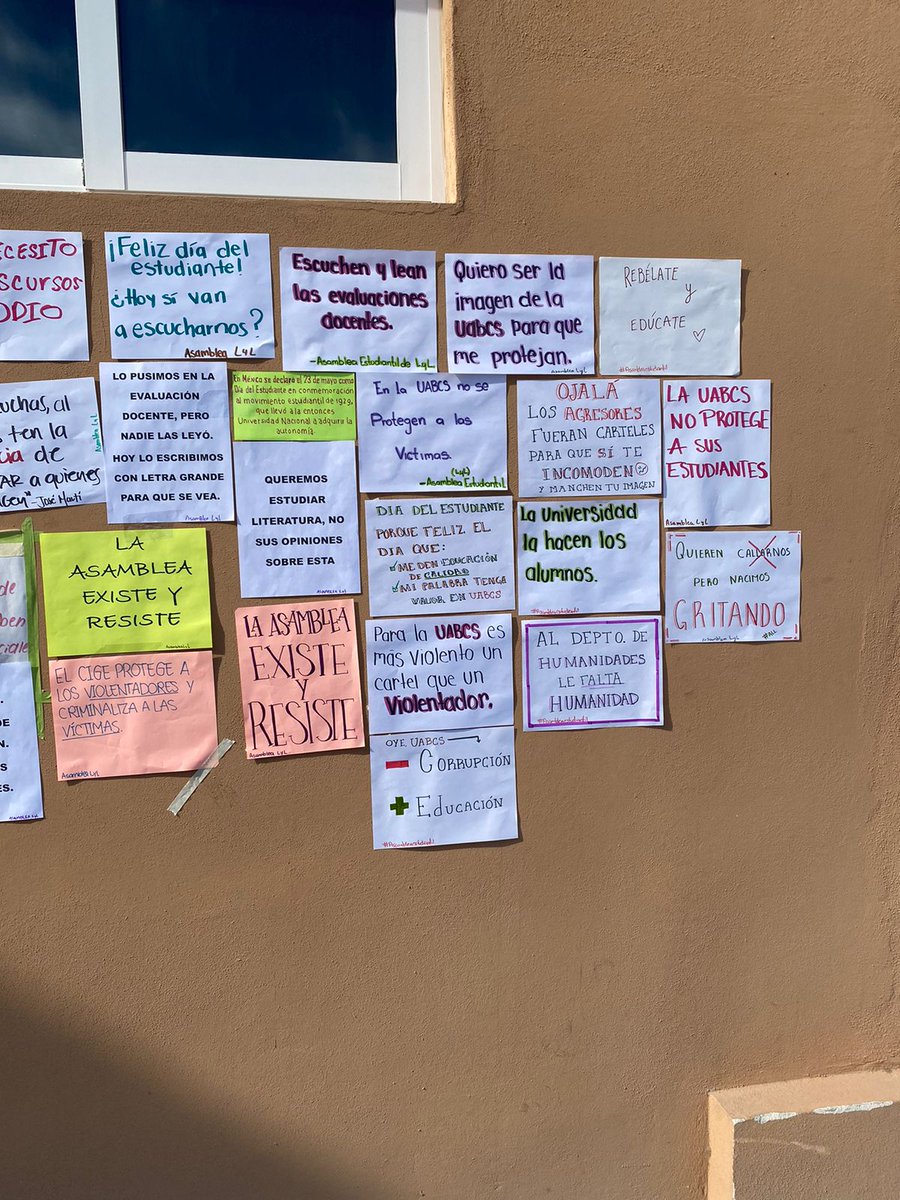 ECESITO
SCURSOS
ODIO
¡Feliz día del
estudiante!
¿Hoy sí van
a escucharnos?
Asamblea LyL
Escuchen y lean
las evaluaciones
docentes.
-Asamblea Estudiantil de LyL
Quiero ser la
imagen de la
UABCS para que
me protejan.
Asamblea LyL
REBÉLATE
Y
EDÚCATE
uchas, al
ten la
cia de
AR a quienes
gen" -José Martí
Asamblea LyL
LO PUSIMOS EN LA
EVALUACIÓN
DOCENTE, PERO
NADIE LAS LEYÓ.
HOY LO ESCRIBIMOS
CON LETRA GRANDE
PARA QUE SE VEA.
Asamblea LyL
En México se declaró el 23 de mayo como
Día del Estudiante en conmemoración
al movimiento estudiantil de 1929,
que llevó a la entonces
Universidad Nacional a adquirir la
autonomía.
QUEREMOS
ESTUDIAR
LITERATURA, NO
SUS OPINIONES
SOBRE ESTA
Asamblea LyL
En la UABCS no se
Protegen a las
Víctimas.
(LyL)
-Asamblea Estudiantil
OJALÁ
LOS AGRESORES
FUERAN CARTELES
PARA QUE SÍ TE
INCOMODEN
Y MANCHEN TU IMAGEN
LA UABCS
NO PROTEGE
A SUS
ESTUDIANTES
Asamblea LyL
LA
ASAMBLEA
EXISTE Y
RESISTE
Asamblea LyL
DIA DEL ESTUDIANTE
PORQUE FELIZ EL
DIA QUE:
ME DEN EDUCACIÓN
DE CALIDAD
MI PALABRA TENGA
VALOR EN UABCS
La universidad
la hacen los
alumnos.
QUIEREN CALLARNOS
PERO NACIMOS
GRITANDO
Asamblea LyL
EL CIGE PROTEGE A
LOS VIOLENTADORES Y
CRIMINALIZA A LAS
VÍCTIMAS.
Asamblea LyL
LA ASAMBLEA
EXISTE
Y
RESISTE
Asamblea LyL
Para la UABCS es
más violento un
cartel que un
Violentador.
AL DEPTO. DE
HUMANIDADES
LE FALTA
HUMANIDAD
OYE, UABCS
- CORRUPCIÓN
+ EDUCACIÓN